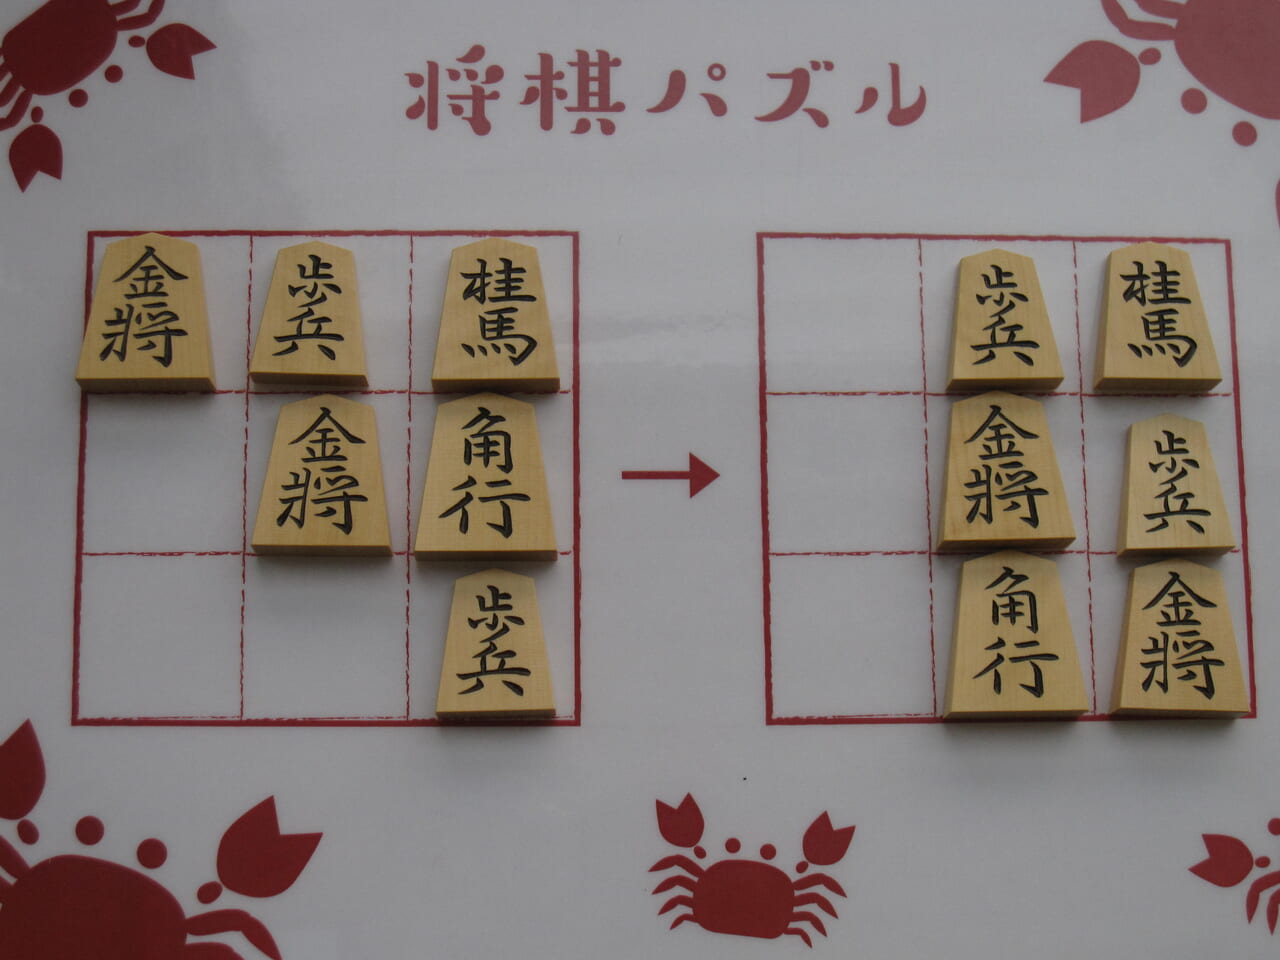 将棋パズル
金将
歩兵
桂馬
金将
角行
歩兵
歩兵
桂馬
金将
歩兵
角行
金将